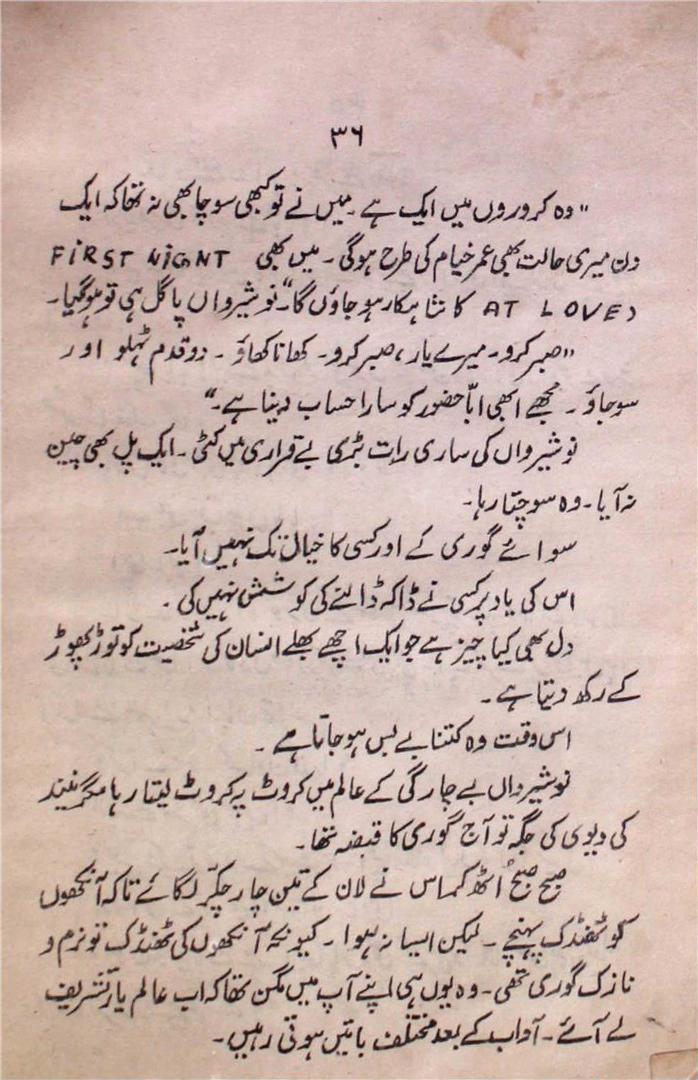 ۳۶
"وہ کروروں میں ایک ہے۔ میں نے تو کبھی سوچا بھی نہ تھا کہ ایک
دن میری حالت بھی عمر خیام کی طرح ہوگی۔ میں بھی FiRST NiGHT
AT LOVE، کا شاہکار ہو جاؤں گا"۔ نوشیرواں پاگل ہی تو ہو گیا۔
"صبر کرو۔ میرے یار، صبر کرو۔ کھانا کھاؤ۔ دو قدم ٹہلو اور
سو جاؤ۔ مجھے ابھی ابّا حضور کو سارا حساب دینا ہے۔"
نوشیرواں کی ساری رات بڑی بے قراری میں کٹی۔ ایک پل بھی چین
نہ آیا۔ وہ سوچتا رہا۔
سوائے گوری کے اور کسی کا خیال تک نہیں آیا۔
اس کی یاد پر کسی نے ڈاکہ ڈالنے کی کوشش نہیں کی۔
دل بھی کیا چیز ہے جو ایک اچھے بھلے انسان کی شخصیت کو توڑ پھوڑ
کے رکھ دیتا ہے۔
اس وقت وہ کتنا بے بس ہو جاتا ہے۔
نوشیرواں بے چارگی کے عالم میں کروٹ پہ کروٹ لیتا رہا مگر نیند
کی دیوی کی جگہ تو آج گوری کا قبضہ تھا۔
صبح صبح اُٹھ کر اس نے لان کے تین چار چکّر لگائے تاکہ آنکھوں
کو ٹھنڈک پہنچے۔ لیکن ایسا نہ ہوا۔ کیونکہ آنکھوں کی ٹھنڈک تو نرم و
نازک گوری تھی۔ وہ یوں ہی اپنے آپ میں مگن تھا کہ اب عالم یار تشریف
لے آئے۔ آداب کے بعد مختلف باتیں ہوتی رہیں۔